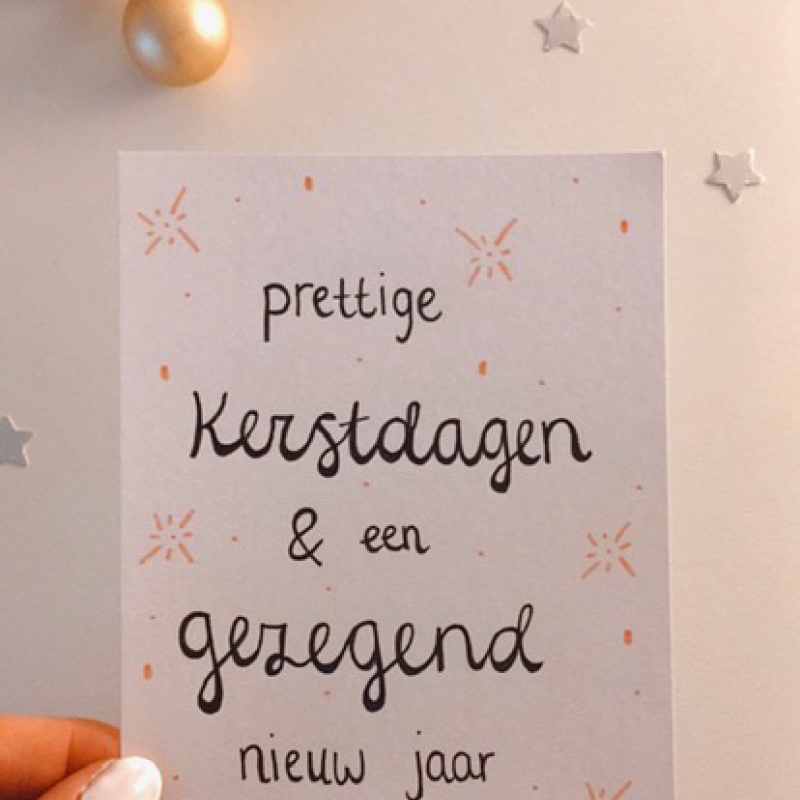 prettige
Kerstdagen
& een
gezegend
nieuw jaar